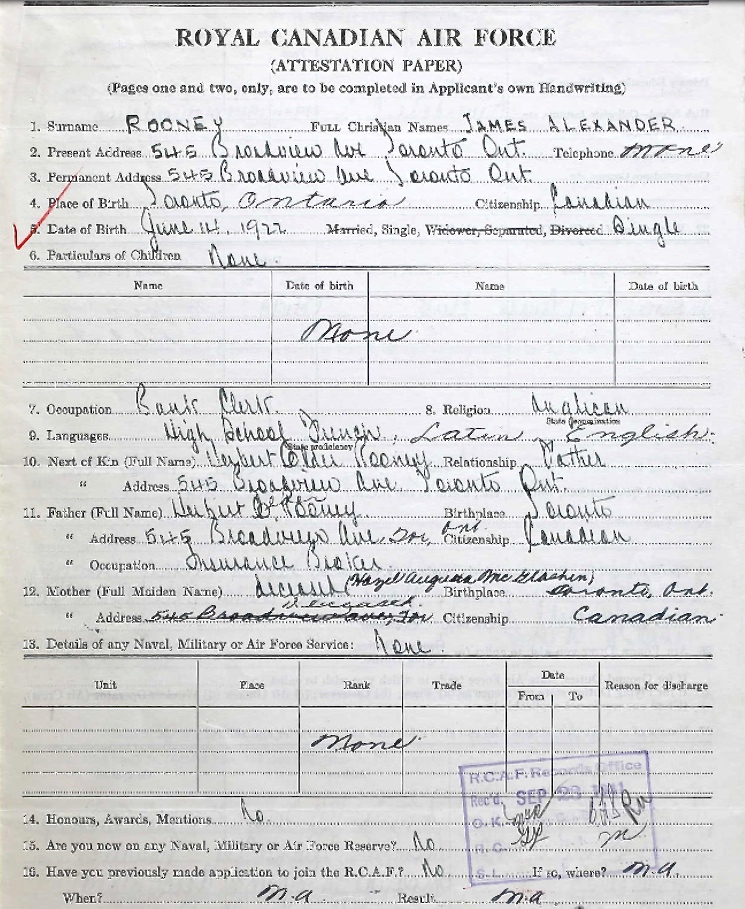 ROYAL CANADIAN AIR FORCE
(ATTESTATION PAPER)
(Pages one and two, only, are to be completed in Applicant's own Handwriting)
1. Surname ROONEY FULL Christian Names JAMES ALEXANDER
2. Present Address 545 Broadview Ave Toronto Ont. Telephone None
3. Permanent Address 545 Broadview Ave Toronto Ont
4. Place of Birth Toronto, Ontario Citizenship Canadian
5. Date of Birth June 14, 1922 Married, Single, Widower, Separated, Divorced Single
6. Particulars of Children None.
Name Date of birth Name Date of birth
None
7. Occupation Bank Clerk. 8. Religion Anglican
State denomination
9. Languages High School French, Latin English.
State proficiency
10. Next of Kin (Full Name) Herbert Rooney Relationship Father
" Address 545 Broadview Ave Toronto Ont.
11. Father (Full Name) Herbert Rooney Birthplace Toronto
" Address 545 Broadview Ave, Tor, Ont Citizenship Canadian
" Occupation Insurance Broker
12. Mother (Full Maiden Name) deceased (Hazel Augusta McGlashen) Birthplace Toronto, Ont.
" Address 545 Broadview Ave, Tor Deceased. Citizenship Canadian
13. Details of any Naval, Military or Air Force Service: None.
Unit Place Rank Trade Date Reason for discharge
From To
None
R.C.A.F. Records Office
Rec'd. SEP 23
O.K.
R.C.
S.L.
14. Honours, Awards, Mentions No.
15. Are you now on any Naval, Military or Air Force Reserve? No
16. Have you previously made application to join the R.C.A.F.? No If so, where? N.A.
When? N.A Result N.A